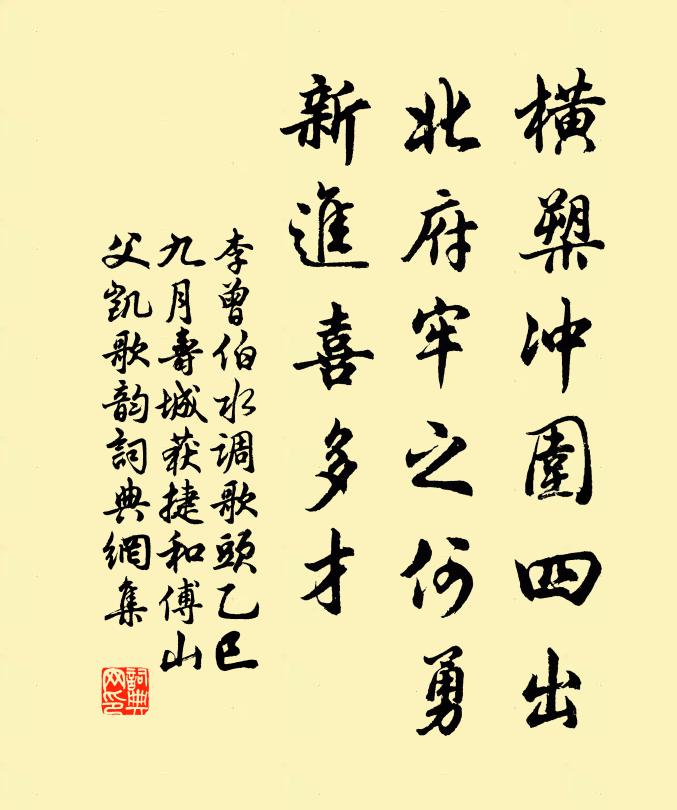 橫槊冲圍四出
北府牢之何勇
新進喜多才
李曾伯水调歌頭乙巳
九月壽城获捷和傅山
父凱歌韵詞典網集
詞典
网印